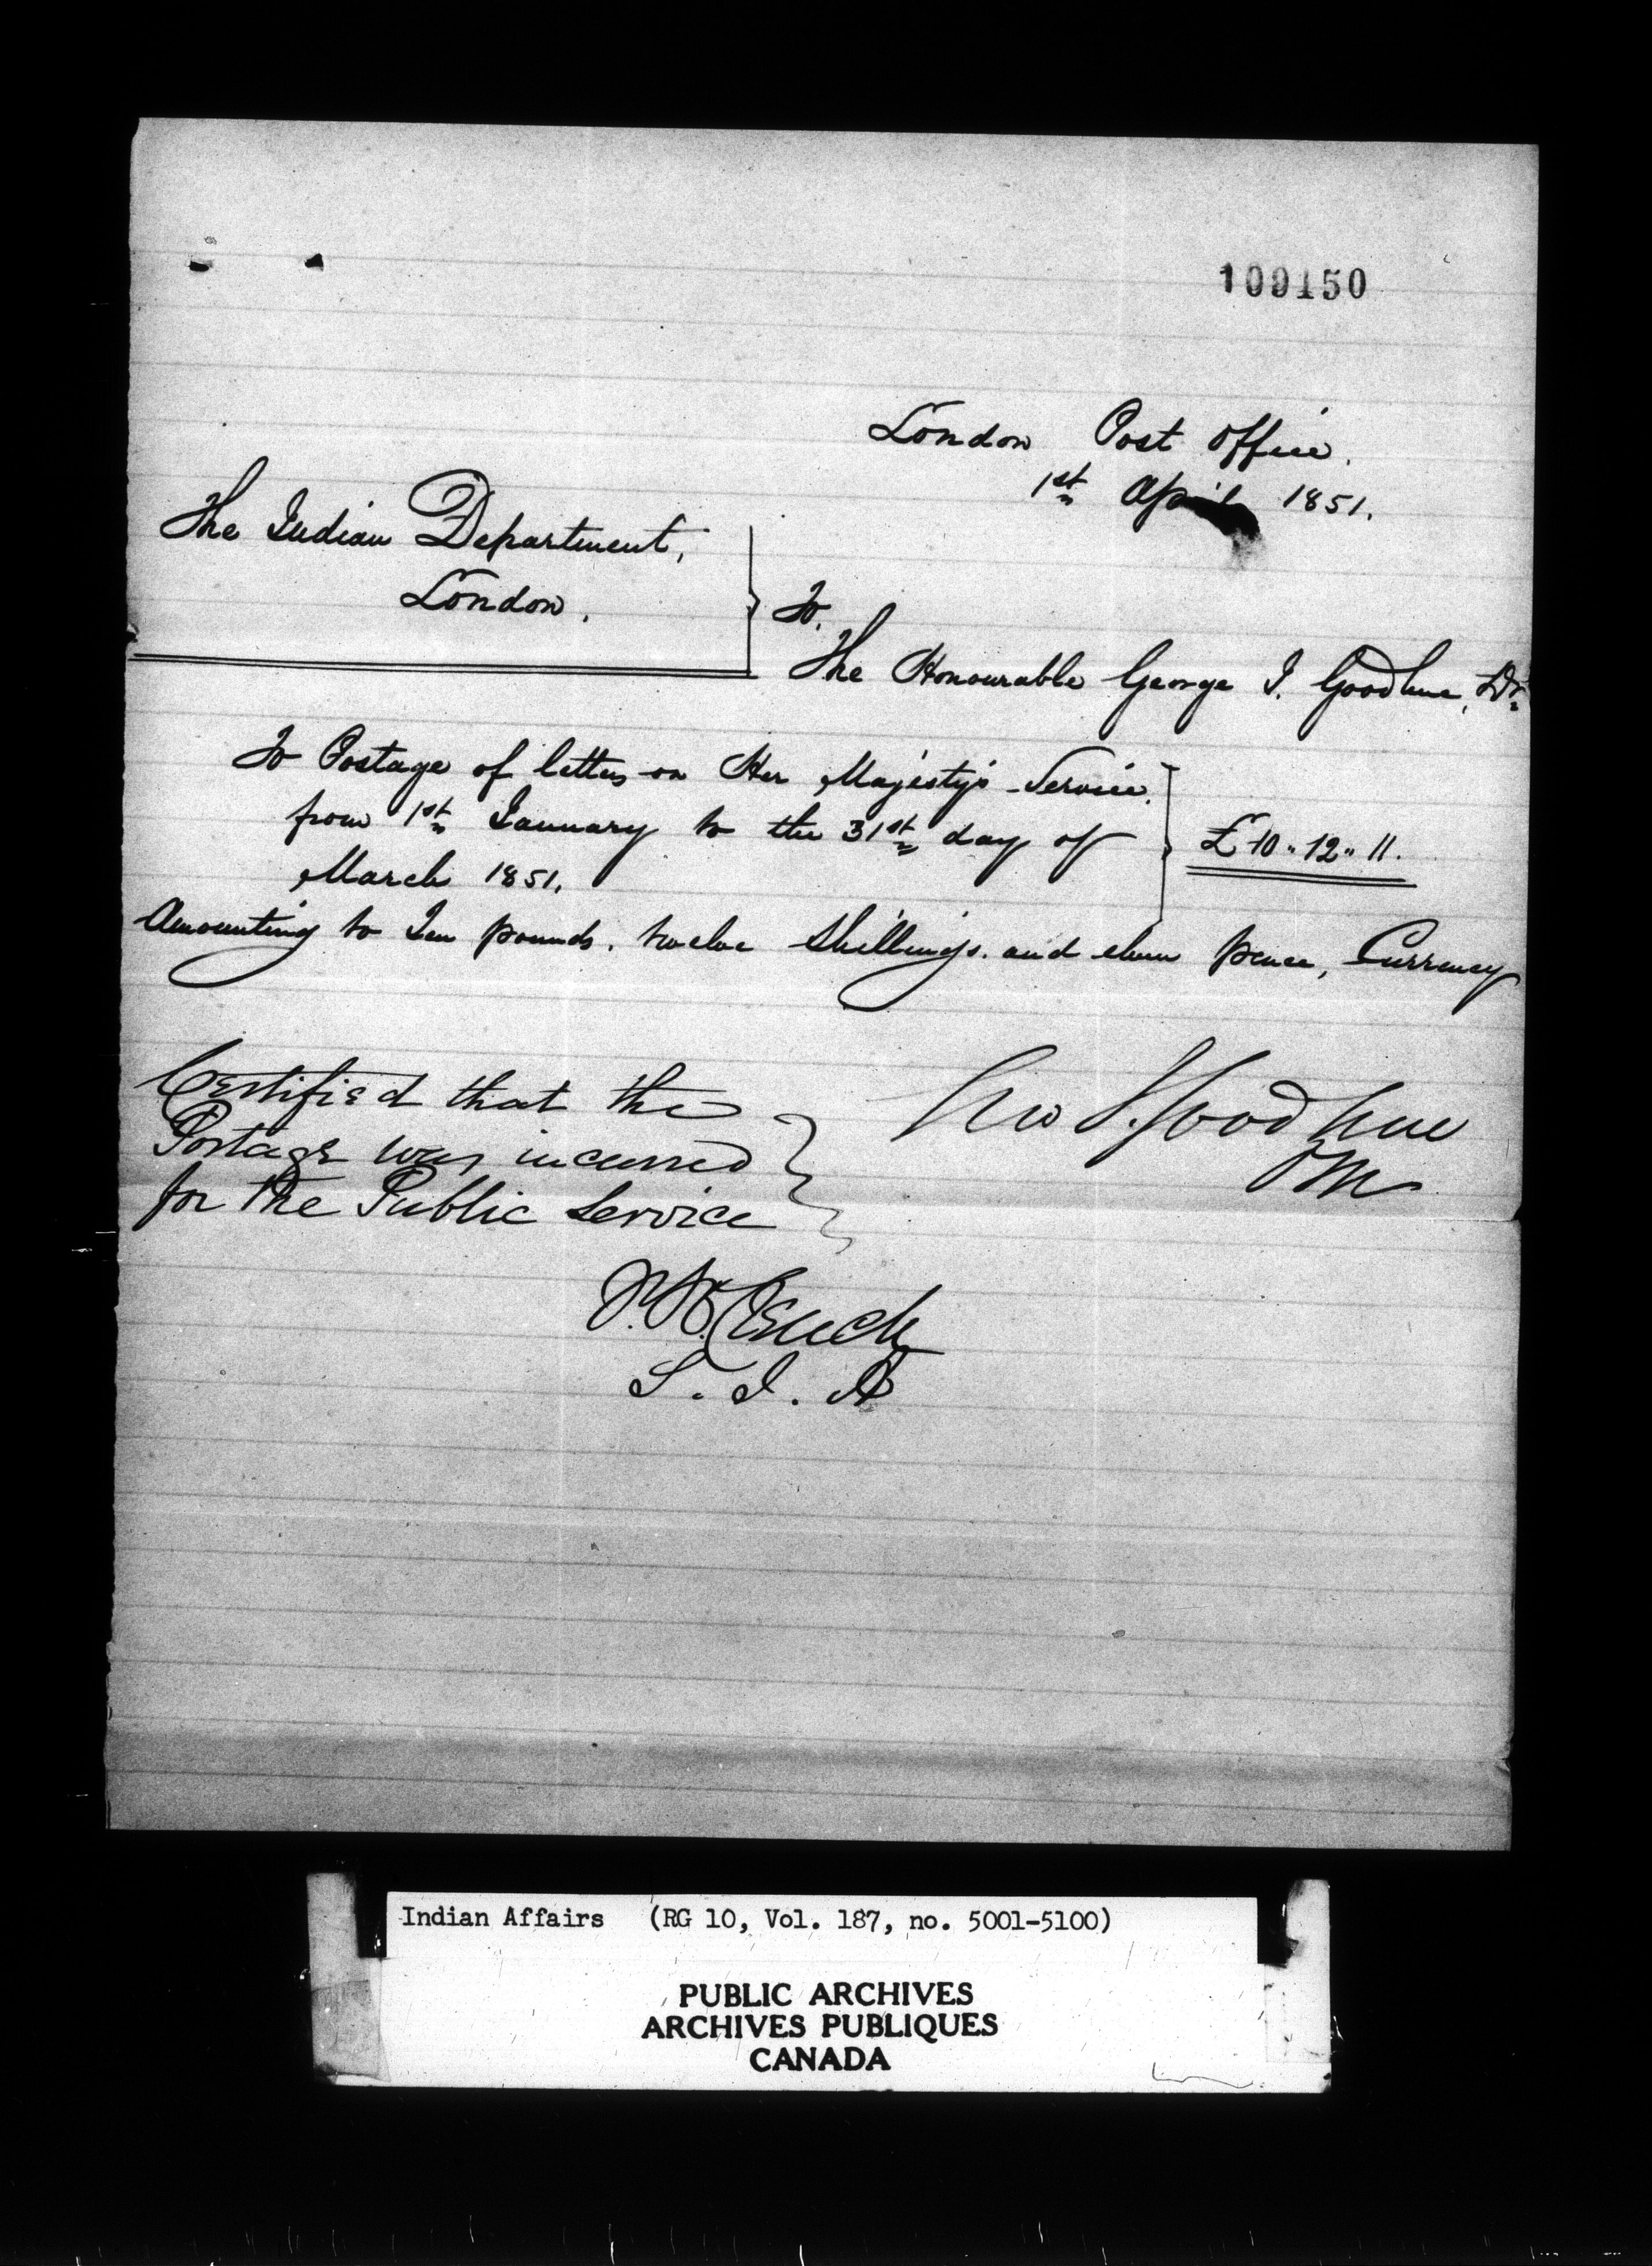 109150
London Post Office.
1st April 1851.
The Indian Department,
London.
To.
The Honourable George J. Goodhue, Dr.
To Postage of letters on Her Majesty's Service.
from 1st January to the 31st day of
March 1851.
£10 " 12 " 11.
Amounting to Ten pounds. twelve Shillings. and eleven pence, Currency
Certified that the
Postage was incurred
for the Public Service
Geo J. Goodhue
PM
J. B. Clench
S. I. A
Indian Affairs (RG 10, Vol. 187, no. 5001-5100)
PUBLIC ARCHIVES
ARCHIVES PUBLIQUES
CANADA